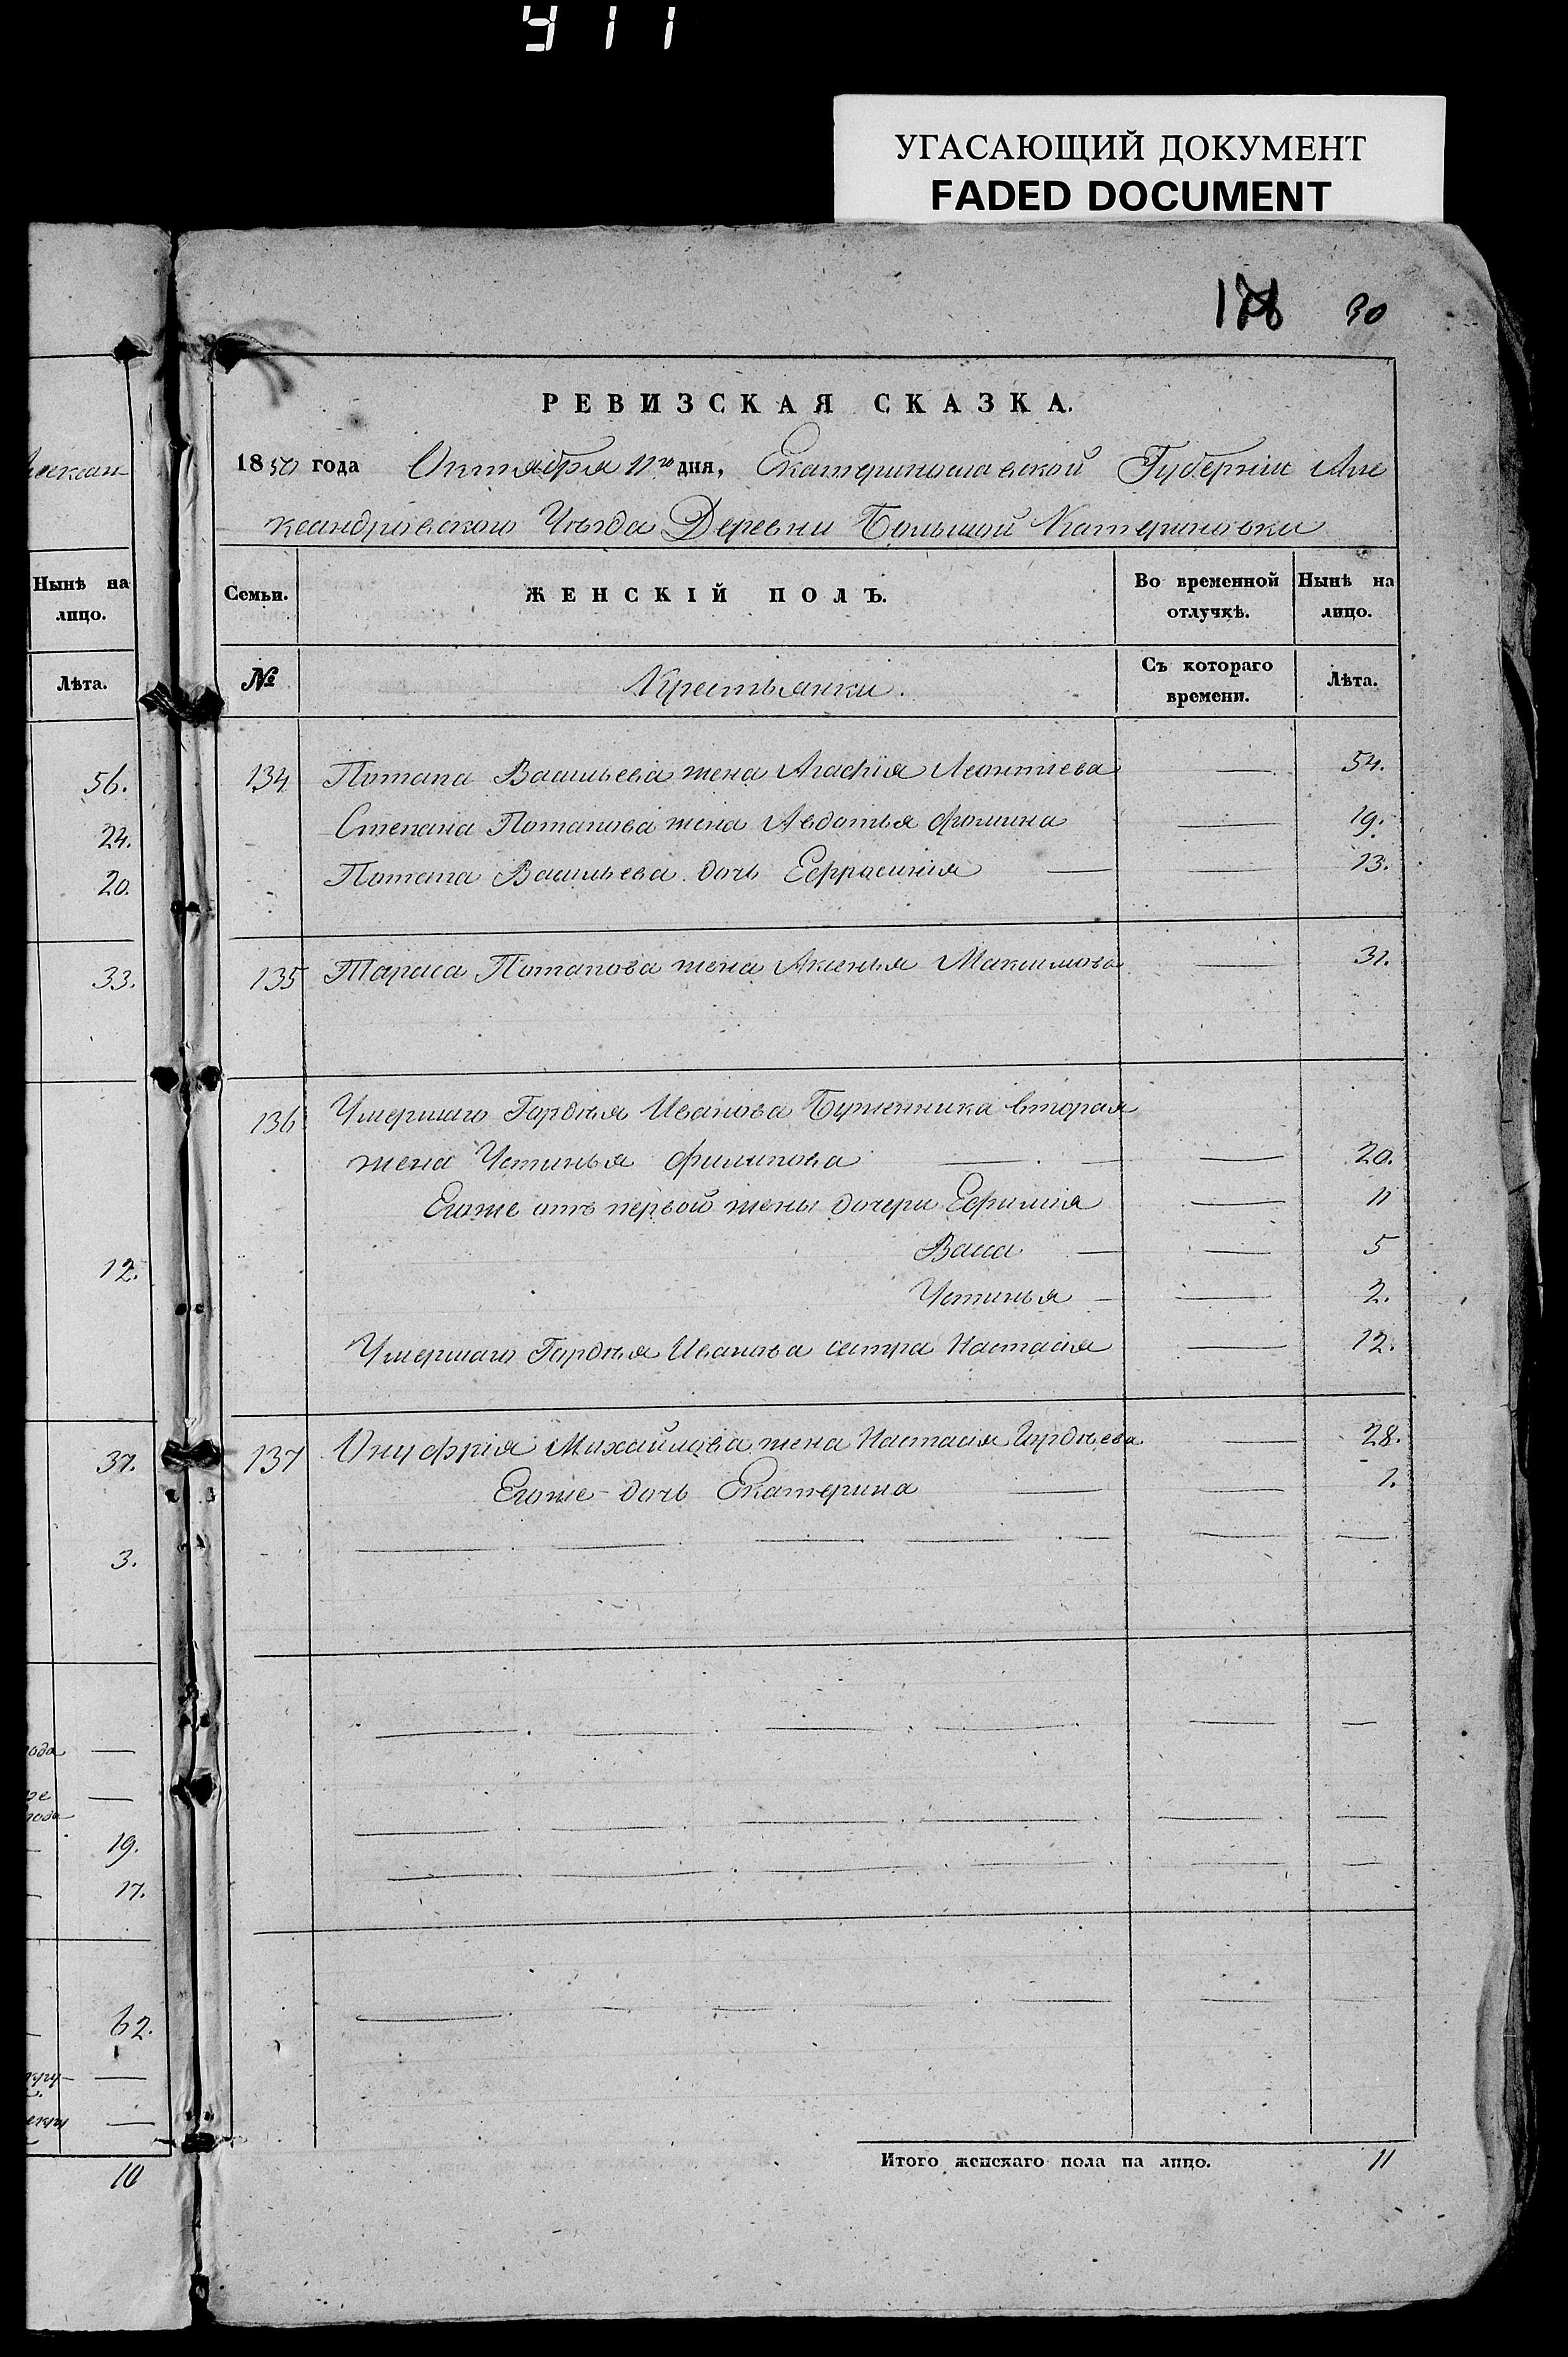 911
УГАСАЮЩИЙ ДОКУМЕНТ
FADED DOCUMENT
30
РЕВИЗСКАЯ СКАЗКА.
1850 года Октября 11го дня, Екатеринославской Губерніи Але
ксандровского Уѣзда Деревни Большой Катериновки
Нынѣ на лицо.
Лѣта.
56.
24.
20.
33.
12.
37.
3.
года
19.
17.
62.
10
Семьи. ЖЕНСКІЙ ПОЛЪ. Во временной отлучкѣ. Нынѣ на лицо.
№ Крестьянки. Съ котораго времени. Лѣта.
134 Потапа Васильева жена Агафія Леонтіева — 54.
Степана Потапова жена Авдотья Фомина — 19.
Потапа Васильева дочь Ефросинія — — 13.
135 Тараса Потапова жена Аксенья Максимова — 31.
136 Умершаго Гордѣя Иванова вторая
жена Устинья Филипова — — — 20.
Егоже отъ первой жены дочери Ефимія — 11
Васса — — 5
Устинья — — 2.
Умершаго Гордѣя Иванова сестра Настасія — 12.
137 Онуфрія Михайлова жена Настасія Гордѣева — 28.
Егоже дочь Екатерина — — 1.
Итого женскаго пола на лицо. 11